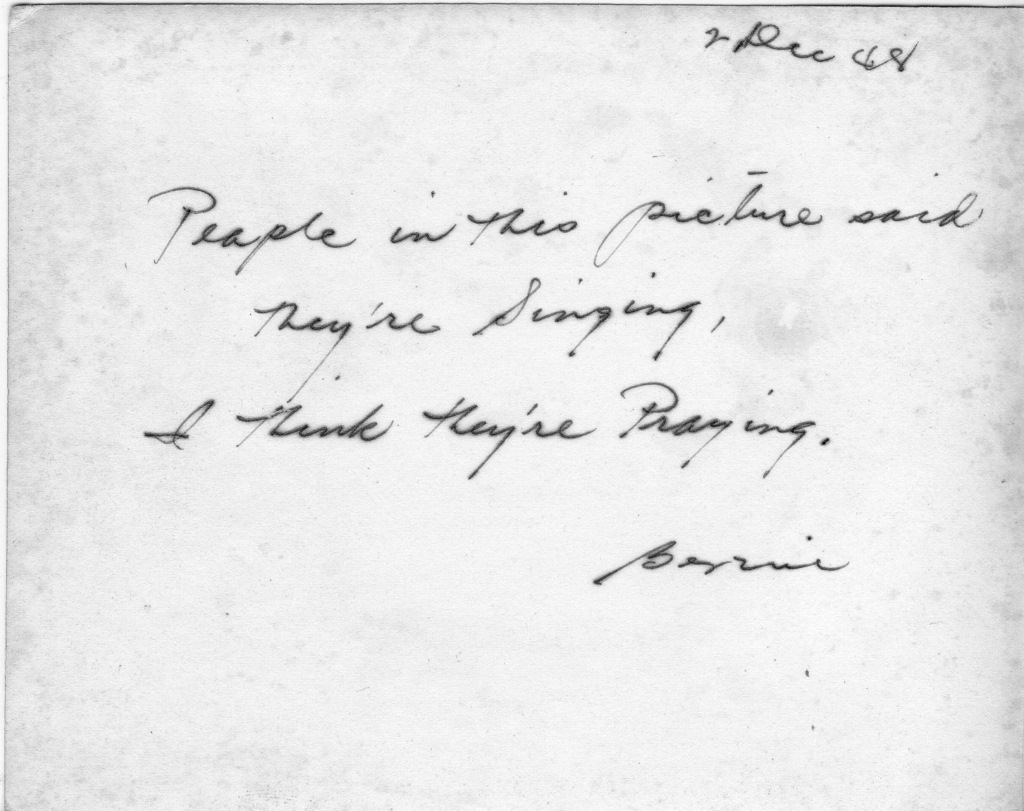 2 Dec 68
People in this picture said
they're Singing,
I think they're Praying.
Bernie